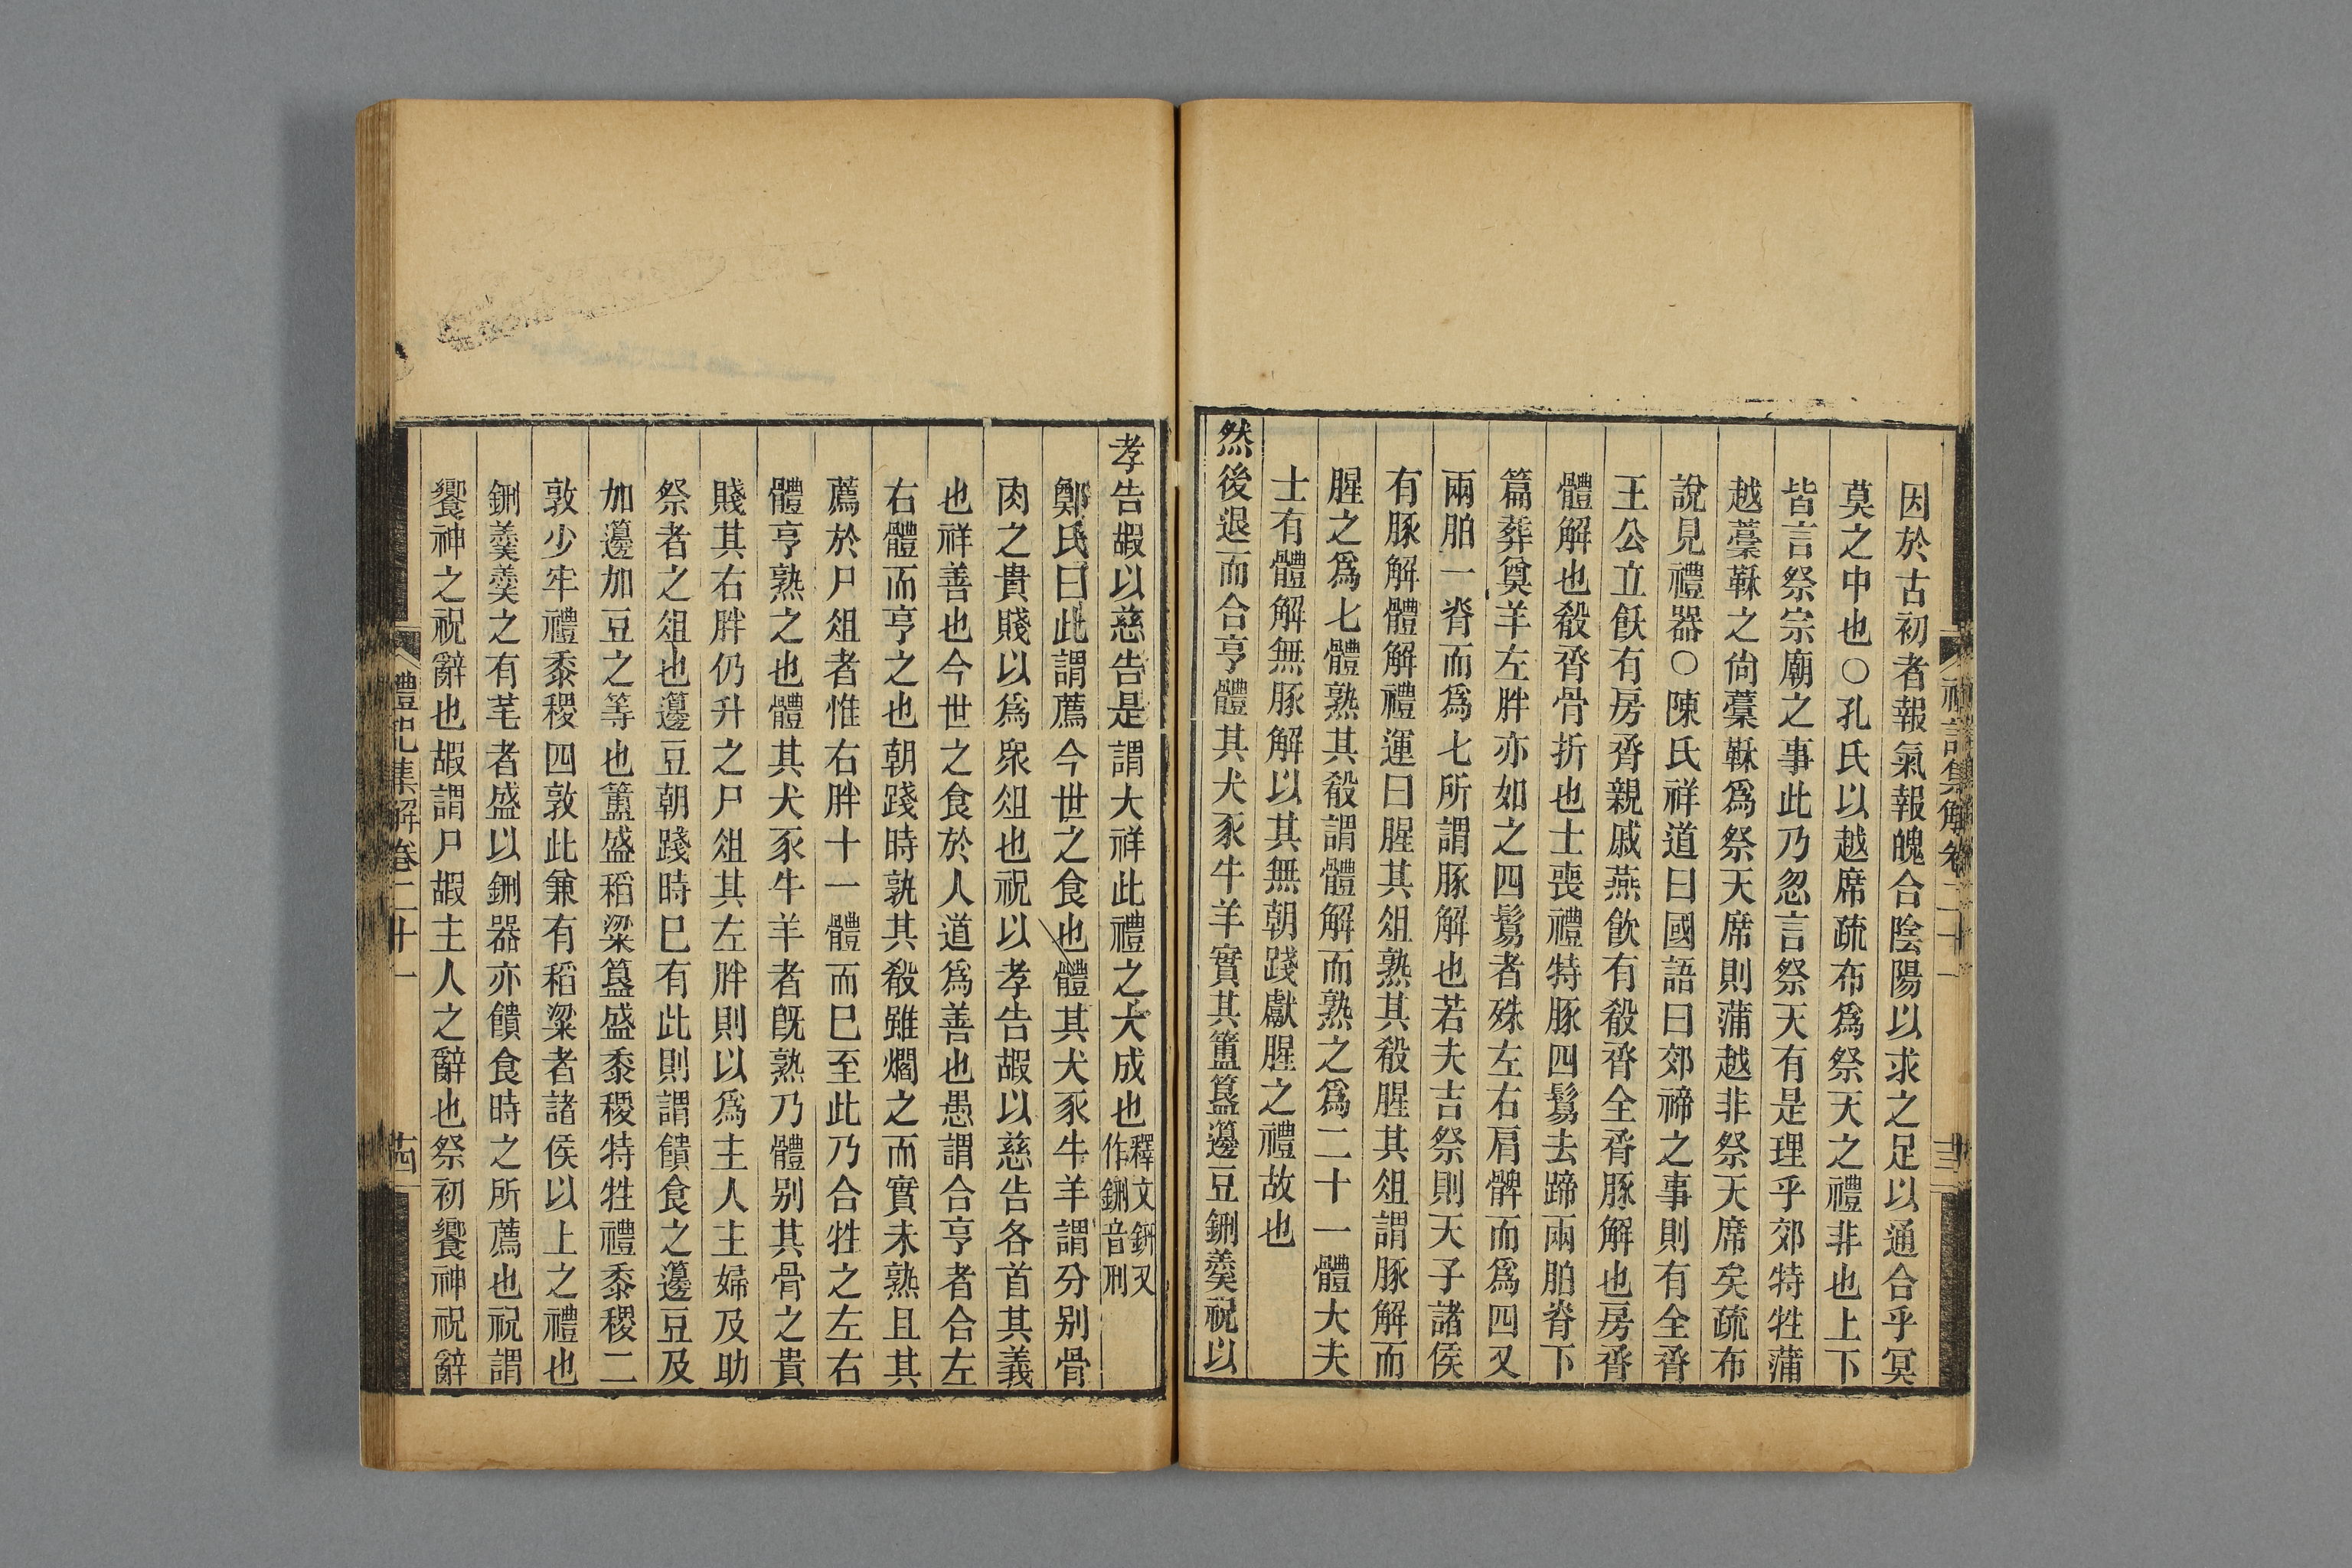 因於古初者報氣報魄合陰陽以求之足以通合乎冥
莫之中也○孔氏以越席疏布爲祭天之禮非也上下
皆言祭宗廟之事此乃忽言祭天有是理乎郊特牲蒲
越藁鞂之尙藁鞂爲祭天席則蒲越非祭天席矣疏布
說見禮器○陳氏祥道曰國語曰郊禘之事則有全脀
王公立飫有房脀親戚燕飮有殽脀全脀豚解也房脀
體解也殽脀骨折也士喪禮特豚四鬄去蹄兩胉脊下
篇葬奠羊左胖亦如之四鬄者殊左右肩髀而爲四又
兩胉一脊而爲七所謂豚解也若夫吉祭則天子諸侯
有豚解體解禮運曰腥其俎熟其殽腥其俎謂豚解而
腥之爲七體熟其殽謂體解而熟之爲二十一體大夫
士有體解無豚解以其無朝踐獻腥之禮故也
然後退而合亨體其犬豕牛羊實其簠簋籩豆鉶羹祝以
禮記集解卷二十一
孝告嘏以慈告是謂大祥此禮之大成也釋文鉶又作鉶音刑
鄭氏曰此謂薦今世之食也體其犬豕牛羊謂分别骨
肉之貴賤以爲眾俎也祝以孝告嘏以慈告各首其義
也祥善也今世之食於人道爲善也愚謂合亨者合左
右體而亨之也朝踐時孰其殽雖爓之而實未熟且其
薦於尸俎者惟右胖十一體而已至此乃合牲之左右
體亨熟之也體其犬豕牛羊者旣熟乃體别其骨之貴
賤其右胖仍升之尸俎其左胖則以爲主人主婦及助
祭者之俎也籩豆朝踐時巳有此則謂饋食之籩豆及
加籩加豆之等也簠盛稻粱簋盛黍稷特牲禮黍稷二
敦少牢禮黍稷四敦此兼有稻粱者諸侯以上之禮也
鉶羹羹之有芼者盛以鉶器亦饋食時之所薦也祝謂
饗神之祝辭也嘏謂尸嘏主人之辭也祭初饗神祝辭
禮記集解卷二十一